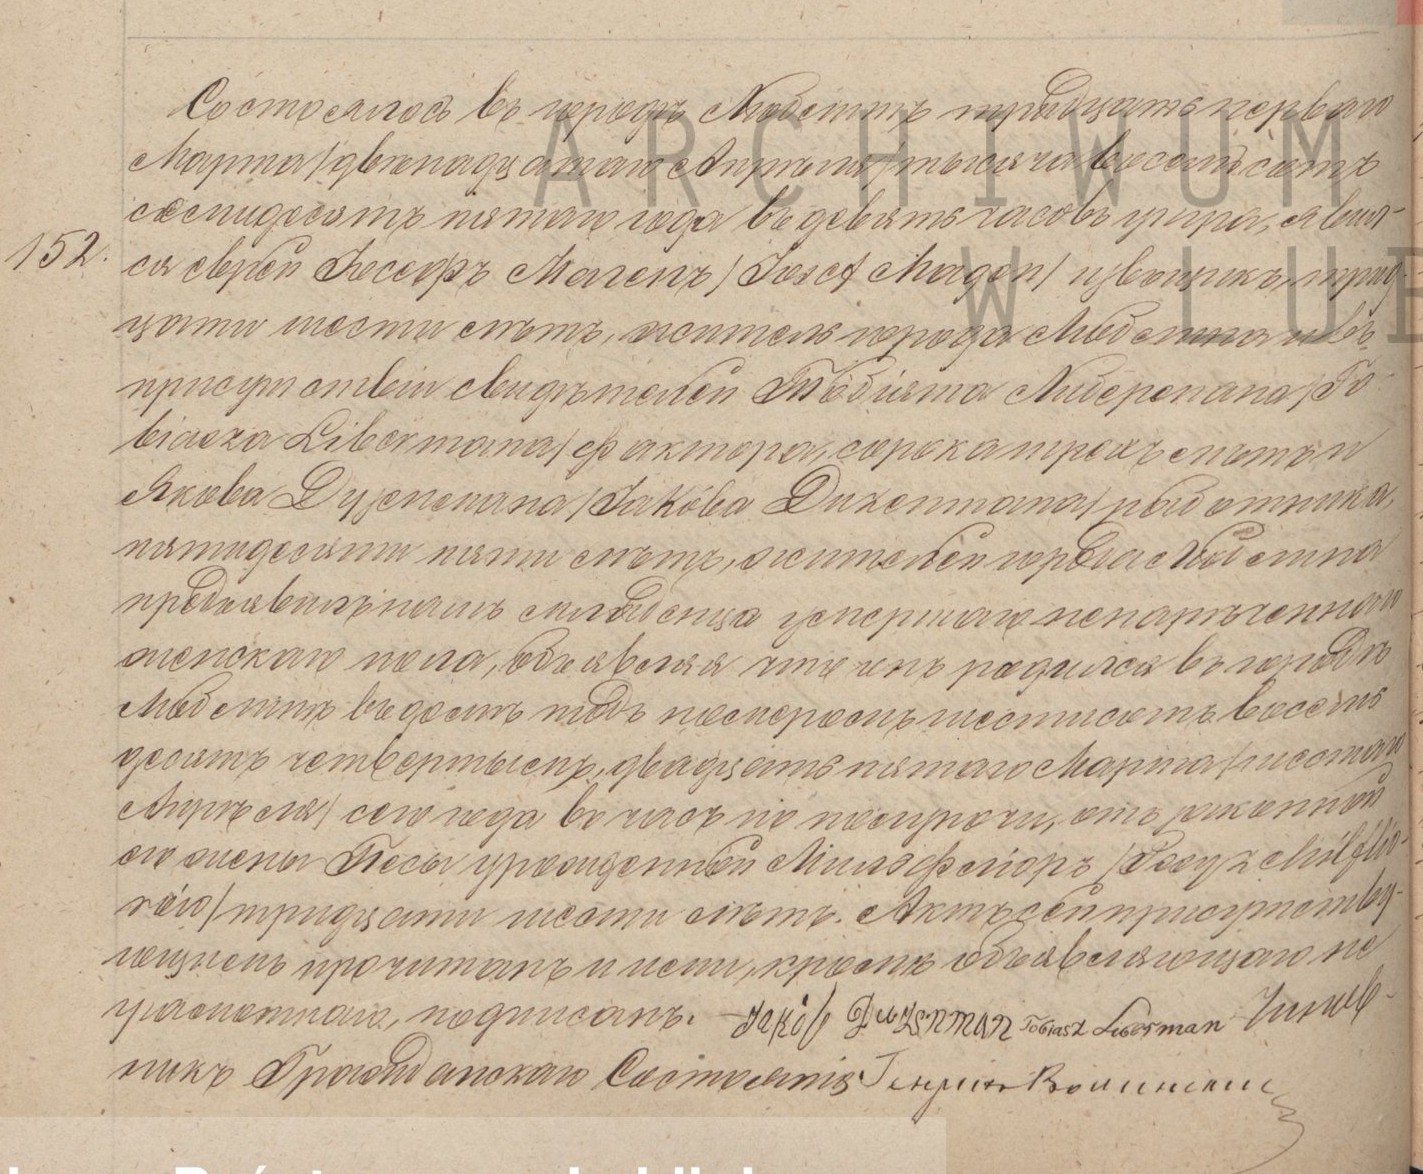 Состоялось въ городѣ Люблинѣ тридцать перваго
Марта /двѣнадцатаго Апрѣля/ тысяча восемь сотъ
семьдесятъ пятаго года въ девять часовъ утра, явил-
152. ся еврей Іосефъ Магенъ /Josef Magen/ извощикъ, трид-
цати шести лѣтъ, житель города Люблина и въ
присутствіи свидѣтелей Тобіяша Либермана /To-
biasza Libermana/ фактора, сорока трехъ лѣтъ и
Якова /Jakóba работника,
пятидесяти пяти лѣтъ, жителей города Люблина
предъявилъ намъ младенца умершаго ненареченнаго
женскаго пола, объявляя что онъ родился въ городѣ
Люблинѣ въ домѣ подъ номеромъ шестисотъ восемь
десятъ четвертымъ, двадцать пятаго Марта /шестаго
Апрѣля/ сего года въ часъ по полуночи, отъ законной
его жены Песы урожденной Мильфліоръ Milflio-
rów/ тридцати шести лѣтъ. Актъ сей присутству-
ющимъ прочитанъ и ими, кромѣ объявляющаго не
грамотнаго, подписанъ. Jakób Tobiasz Liberman Чинов-
никъ Гражданскаго Состоянія Генрихъ
ARCHIWUM
W LUB